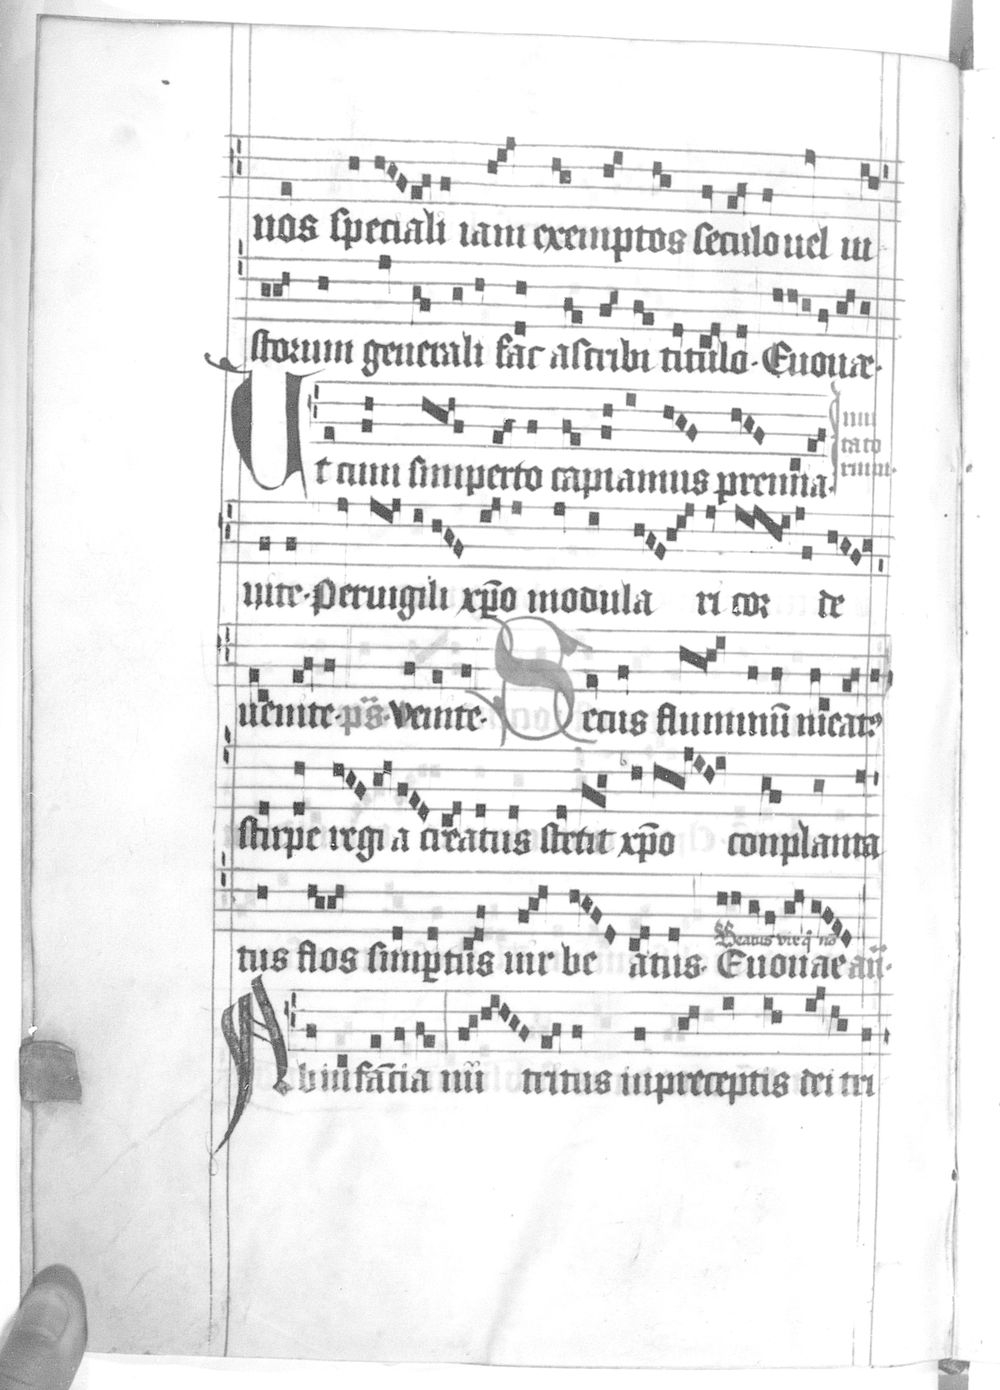 nos speciali iam exemptos seculo uel iu
storum generali fac ascribi titulo. Euouae.
Ut cum simperto capiamus premia.
inui
tato
rium.
uite. Peruigili xp̄o modula ri cor de
uenite. ps̄. Venite. Secus fluminū micat
stirpe regi a creatus stetit xp̄o complanta
Beatus vir q̇ nō
tus flos simptus uir be atus. Euouae añ.
Ab infācia nū tritus in preceptis dei tri